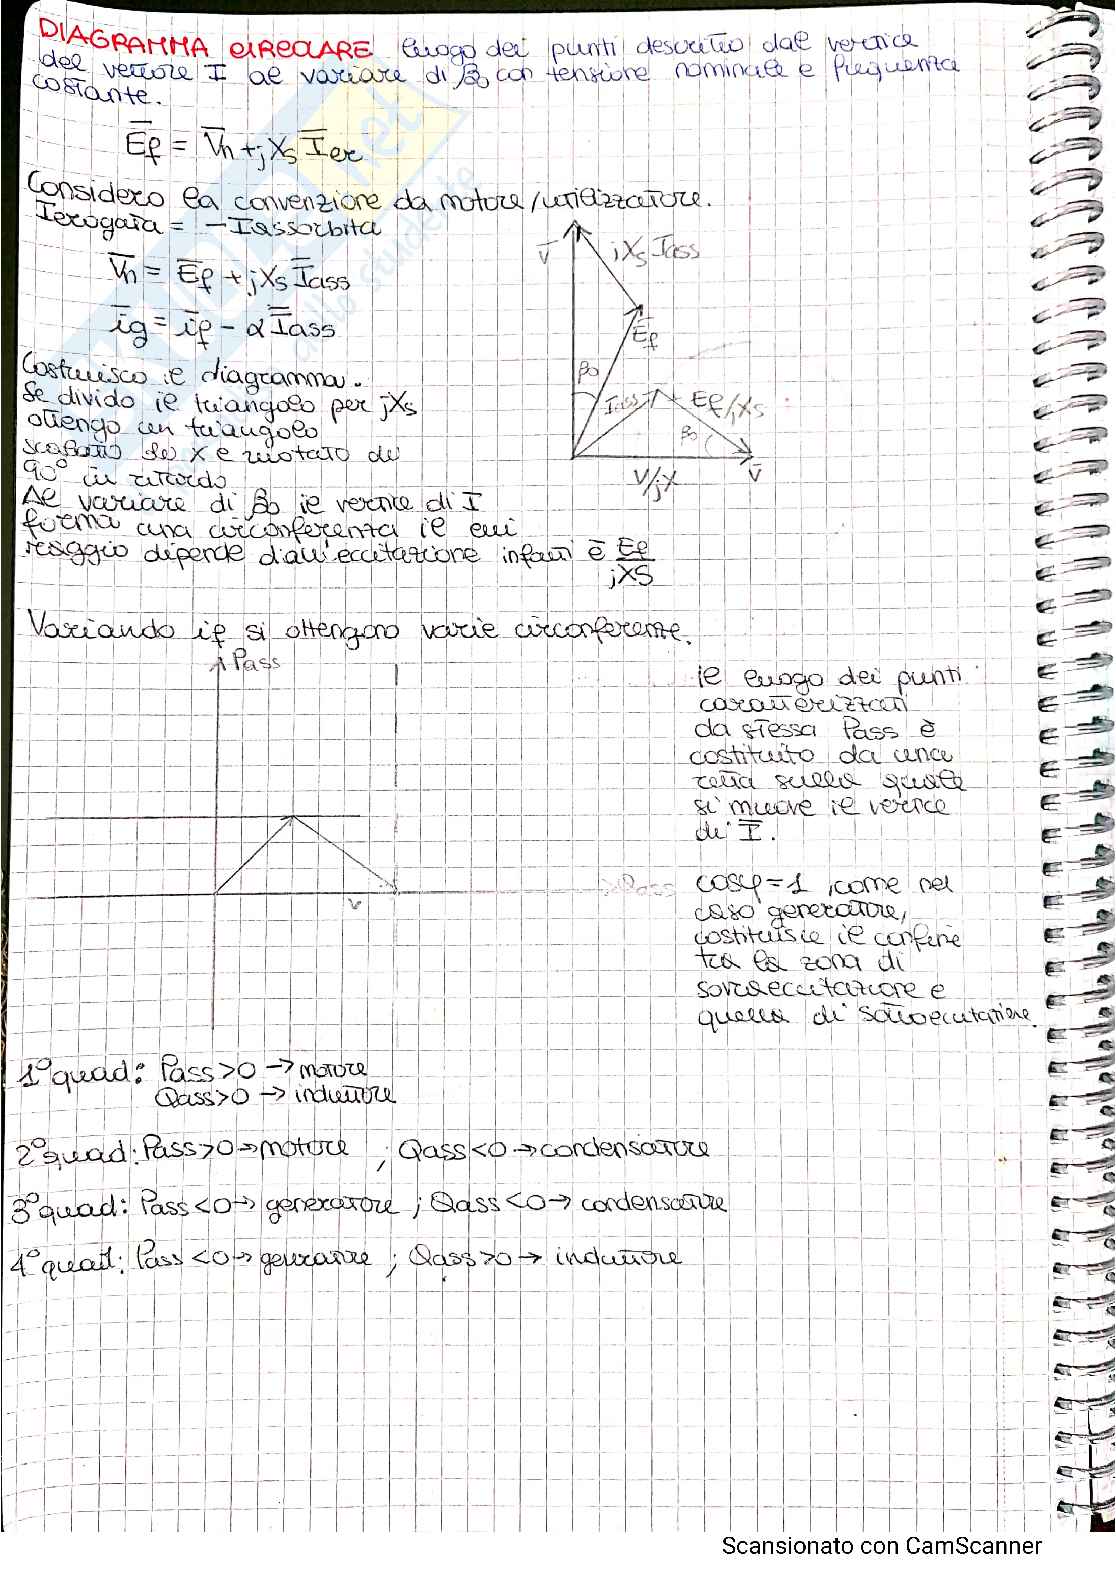 DIAGRAMMA CIRCOLARE luogo dei punti descritto dal vertice
del vettore I al variare di β0 con tensione nominale e frequenza
costante.
Ēf = V̄n + jXs Īer
Considero la convenzione da motore/utilizzatore.
Ierogata = -Iassorbita
V̄n = Ēf + jXs Īass
īg = īf - α Īass
V̄
jXs Iass
Ēf
β0
Iass
Ef/jXs
β0
V/jX
V̄
Costruisco il diagramma.
Se divido il triangolo per jXs
ottengo un triangolo
scalato di X e ruotato di
90° in ritardo
Al variare di β0 il vertice di I
forma una circonferenza il cui
raggio dipende dall'eccitazione infatti è Ef/jXS
Variando if si ottengono varie circonferenze.
Pass
v
il luogo dei punti
caratterizzati
da stessa Pass è
costituito da una
retta sulla quale
si muove il vertice
di Ī.
cosφ=1, come nel
caso generatore,
costituisce il confine
tra la zona di
sovraeccitazione e
quella di sottoeccitazione.
1° quad: Pass>0 → motore
Qass>0 → induttore
2° quad: Pass>0 → motore ; Qass<0 → condensatore
3° quad: Pass<0 → generatore ; Qass<0 → condensatore
4° quad: Pass<0 → generatore ; Qass>0 → induttore
Scansionato con CamScanner